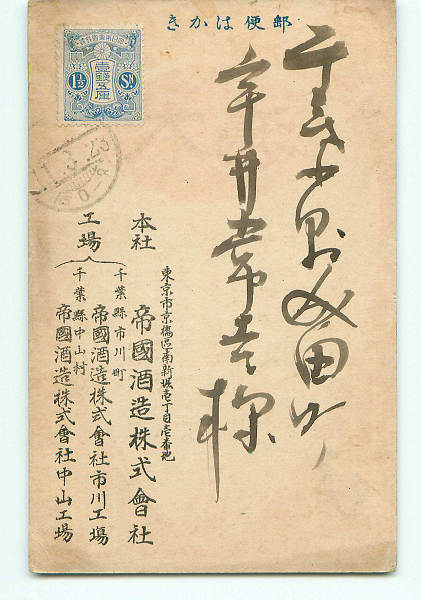 郵便はかき
壹錢五厘
1½ Sn
成田町
常吉様
東京市京橋區南新堀壱丁目壱番地
本社 帝國酒造株式會社
工場
千葉縣市川町
帝國酒造株式會社市川工場
千葉縣中山村
帝國酒造株式會社中山工場